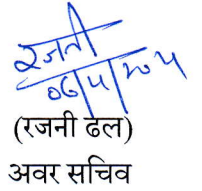 रजनी
06/5/2025
(रजनी ढल)
अवर सचिव